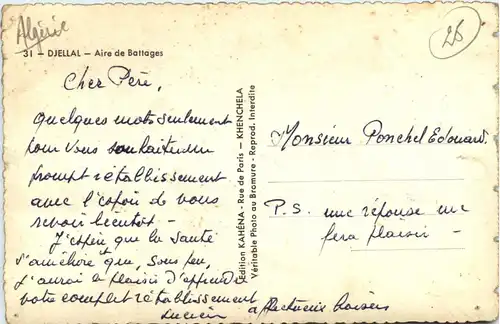 Algérie
26
31 – DJELLAL – Aire de Battages
Cher Père,
quelques mots seulement
pour vous souhaiter un
prompt rétablissement
avec l'espoir de vous
revoir bientôt -
J'espère que la santé
s'améliore et que, sous peu,
j'aurai le plaisir d'apprendre
votre complet rétablissement
Lucien affectueux baisers
Edition KAFÉNA - Rue de Paris - KHENCHELA
Véritable Photo au Bromure - Reprod. Interdite
Monsieur Ponchel Edouard
P.S. une réponse me
fera plaisir -